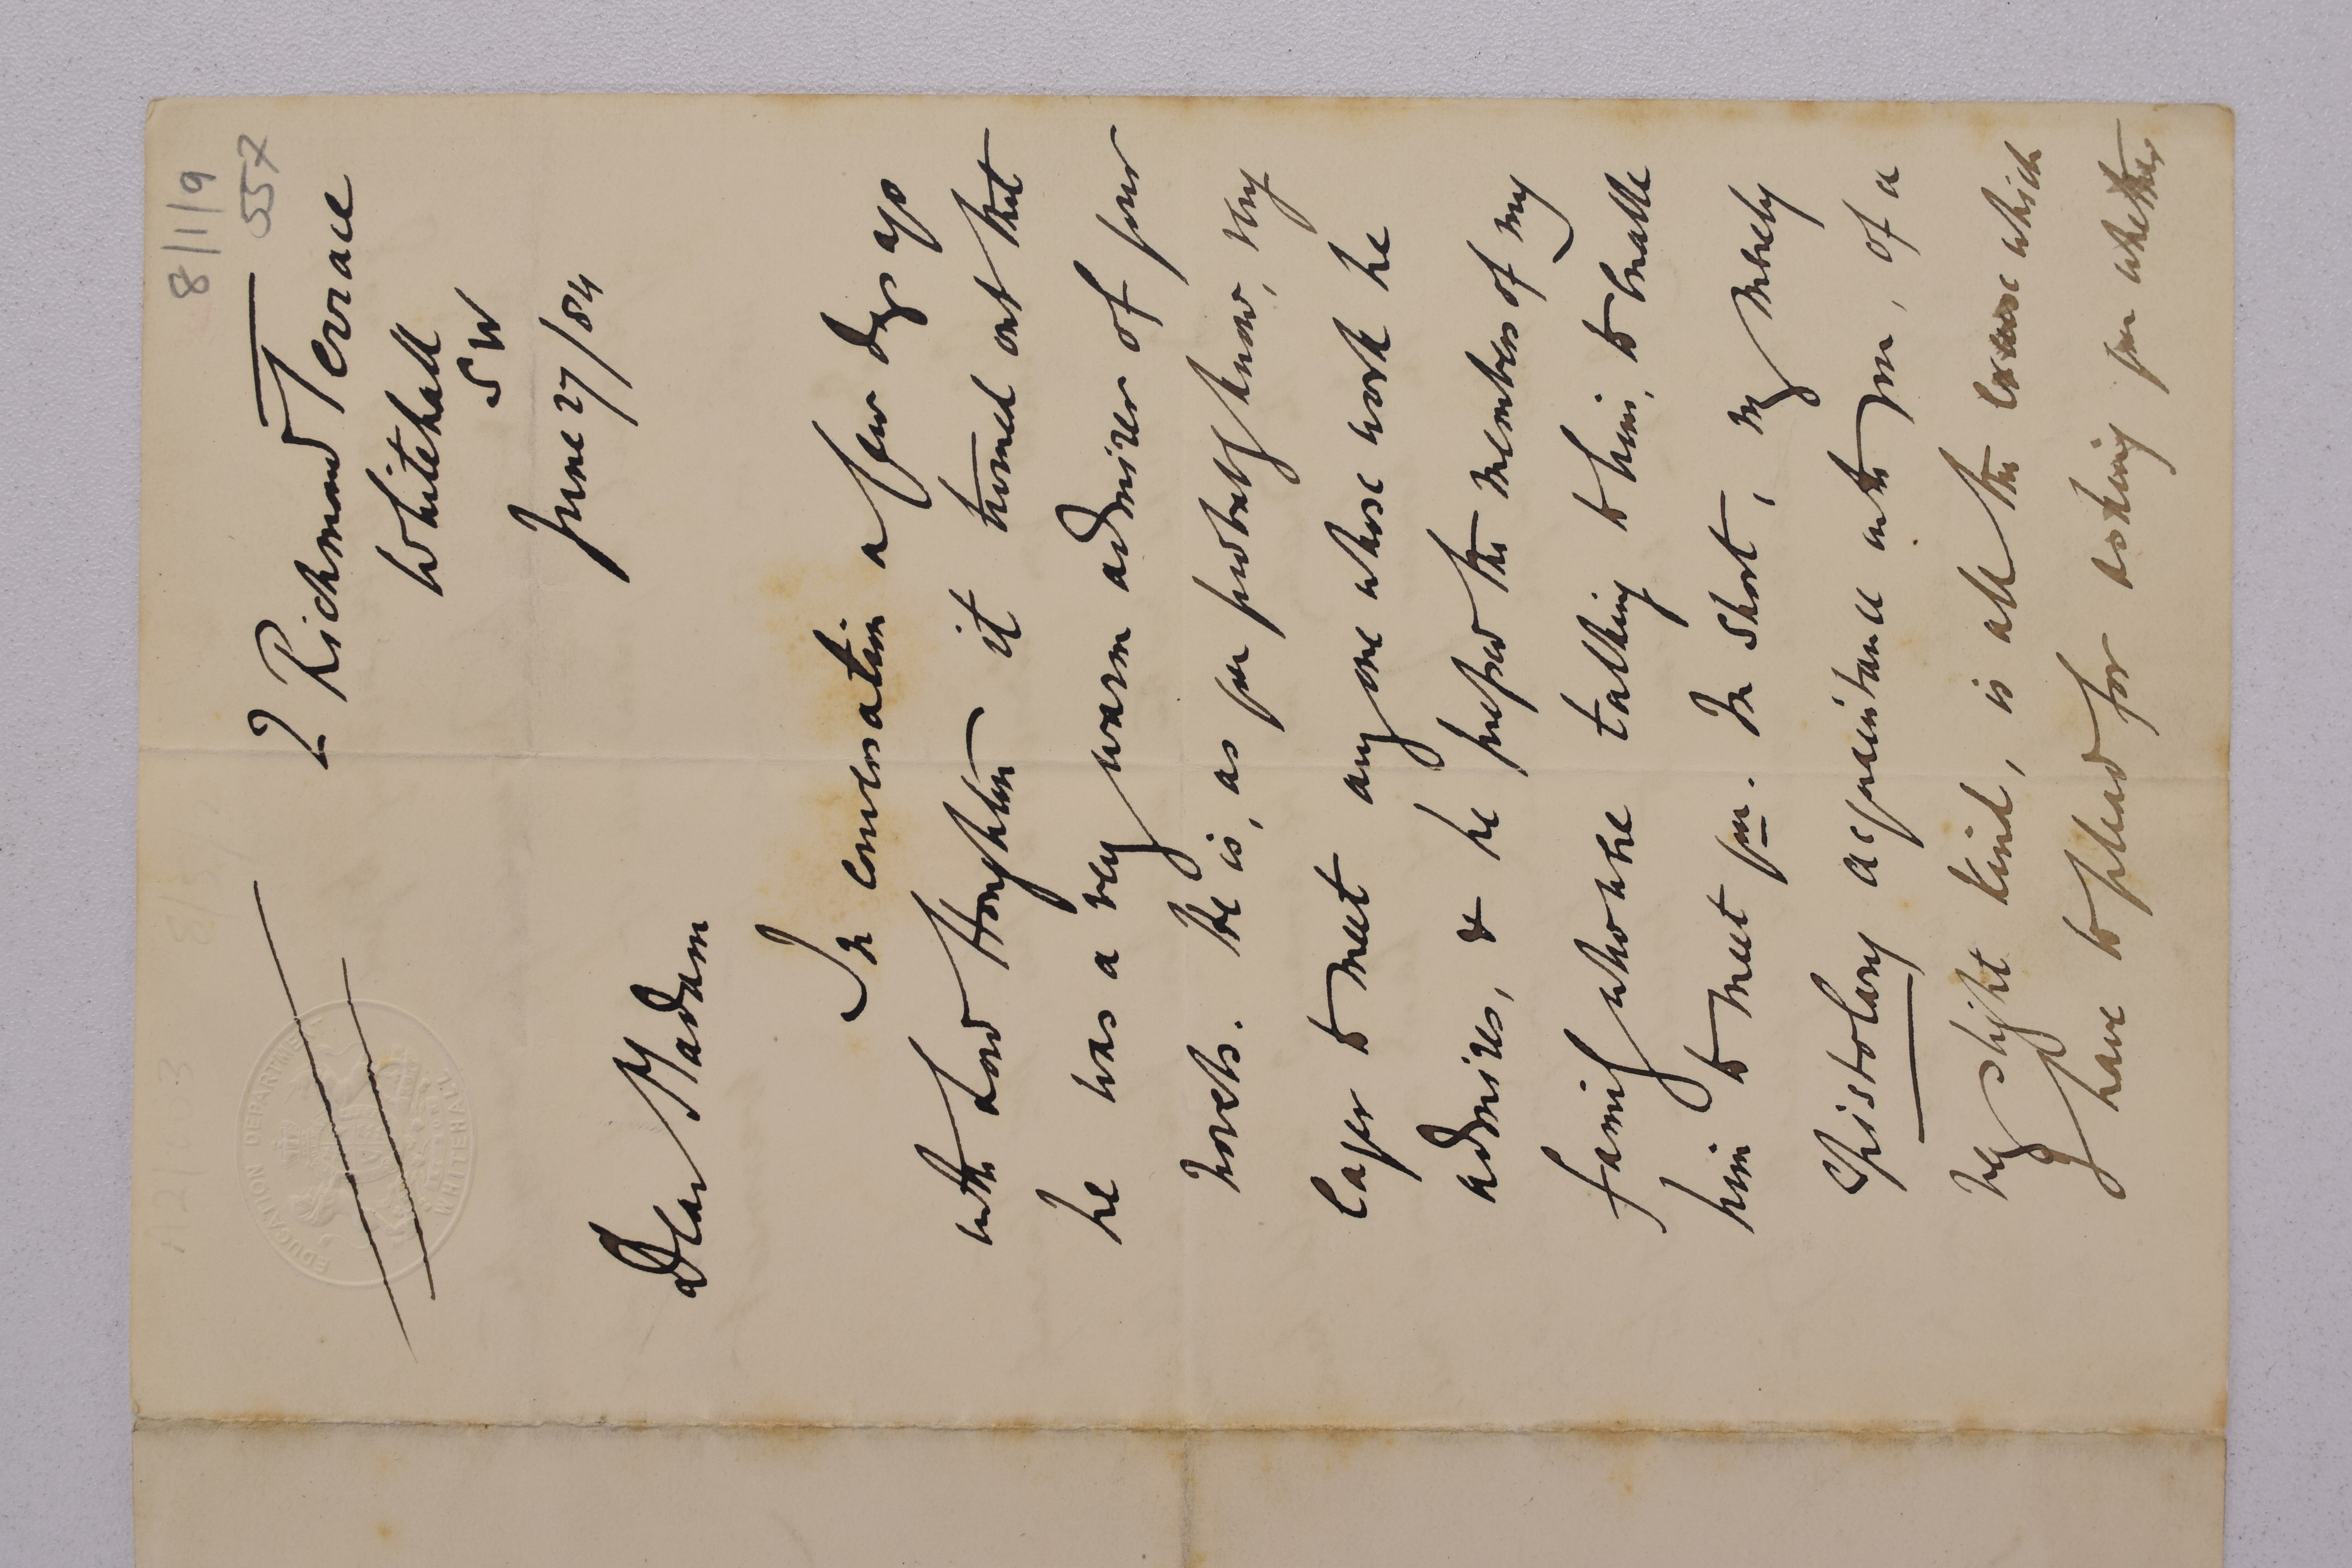 8/1/9
557
A2/003
EDUCATION DEPARTMENT
WHITEHALL
2 Richmond Terrace
Whitehall
SW
June 27/84
Dear Madam
In conversation a few days ago
with Lord Houghton it turned out that
he was a very warm admirer of your
novels. He is, as you probably know, very
eager to meet any one whose work he
admires, & he pressed the members of my
family who were talking to him, to enable
him to meet you. In short, my merely
epistolary acquaintance with you, of a
very slight kind, is all the excuse which
I have to plead for asking you whether